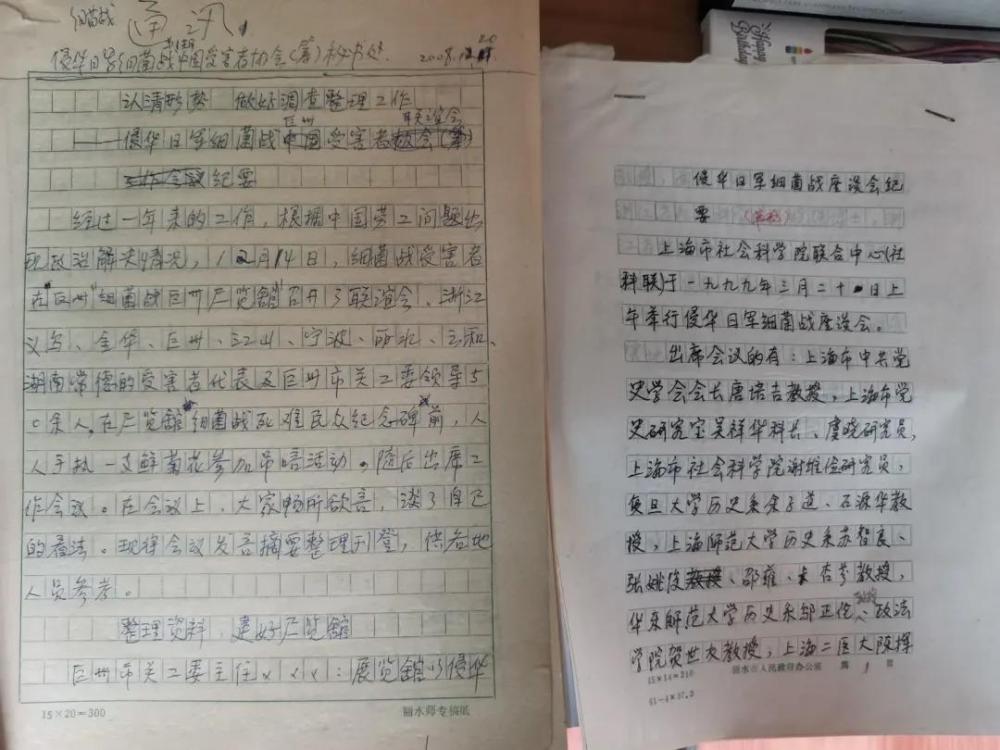 细菌战
通讯
侵华日军细菌战中国受害者协会(筹)秘书处 2008.12.20
认清形势 做好调查整理工作
——侵华日军细菌战衢州受害者联谊会
纪要
经过一年来的工作,根据中国劳工问题出
现政治解决的情况,12月14日,细菌战受害者
在衢州"细菌战衢州展览馆"召开了联谊会、浙江
义乌、金华、衢州、江山、宁波、丽水、云和、
湖南常德的受害者代表及衢州市关工委领导5
0余人,在展览馆"细菌战死难民众纪念碑"前,人
人手执一支鲜菊花参加吊唁活动。随后出席工
作会议。在会议上,大家畅所欲言,谈了自己
的看法。现将会议发言摘要整理刊登,供各地
人员参考。
整理资料,建好展览馆
衢州市关工委主任×××:展览馆以侵华
15×20=300 丽水师专稿纸
Happy Birthday
侵华日军细菌战座谈会纪
要(草稿)
上海市社会科学院联合中心(社
科联)于一九九九年三月二十日上
午举行侵华日军细菌战座谈会。
出席会议的有:上海市中共党
史学会会长唐培吉教授,上海市党
史研究室吴祥华科长、虞晓研究员,
上海市社会科学院谢维俭研究员,
复旦大学历史系余子道、石源华教
授,上海师范大学历史系苏智良、
张姚俊、邵雍、杏芬教授,
华东师范大学历史系邬正佗、政法
学院贺世友教授,上海二医大陈挥
15×14=210 丽水市人民政府办公室 第1页
61-4×87.3